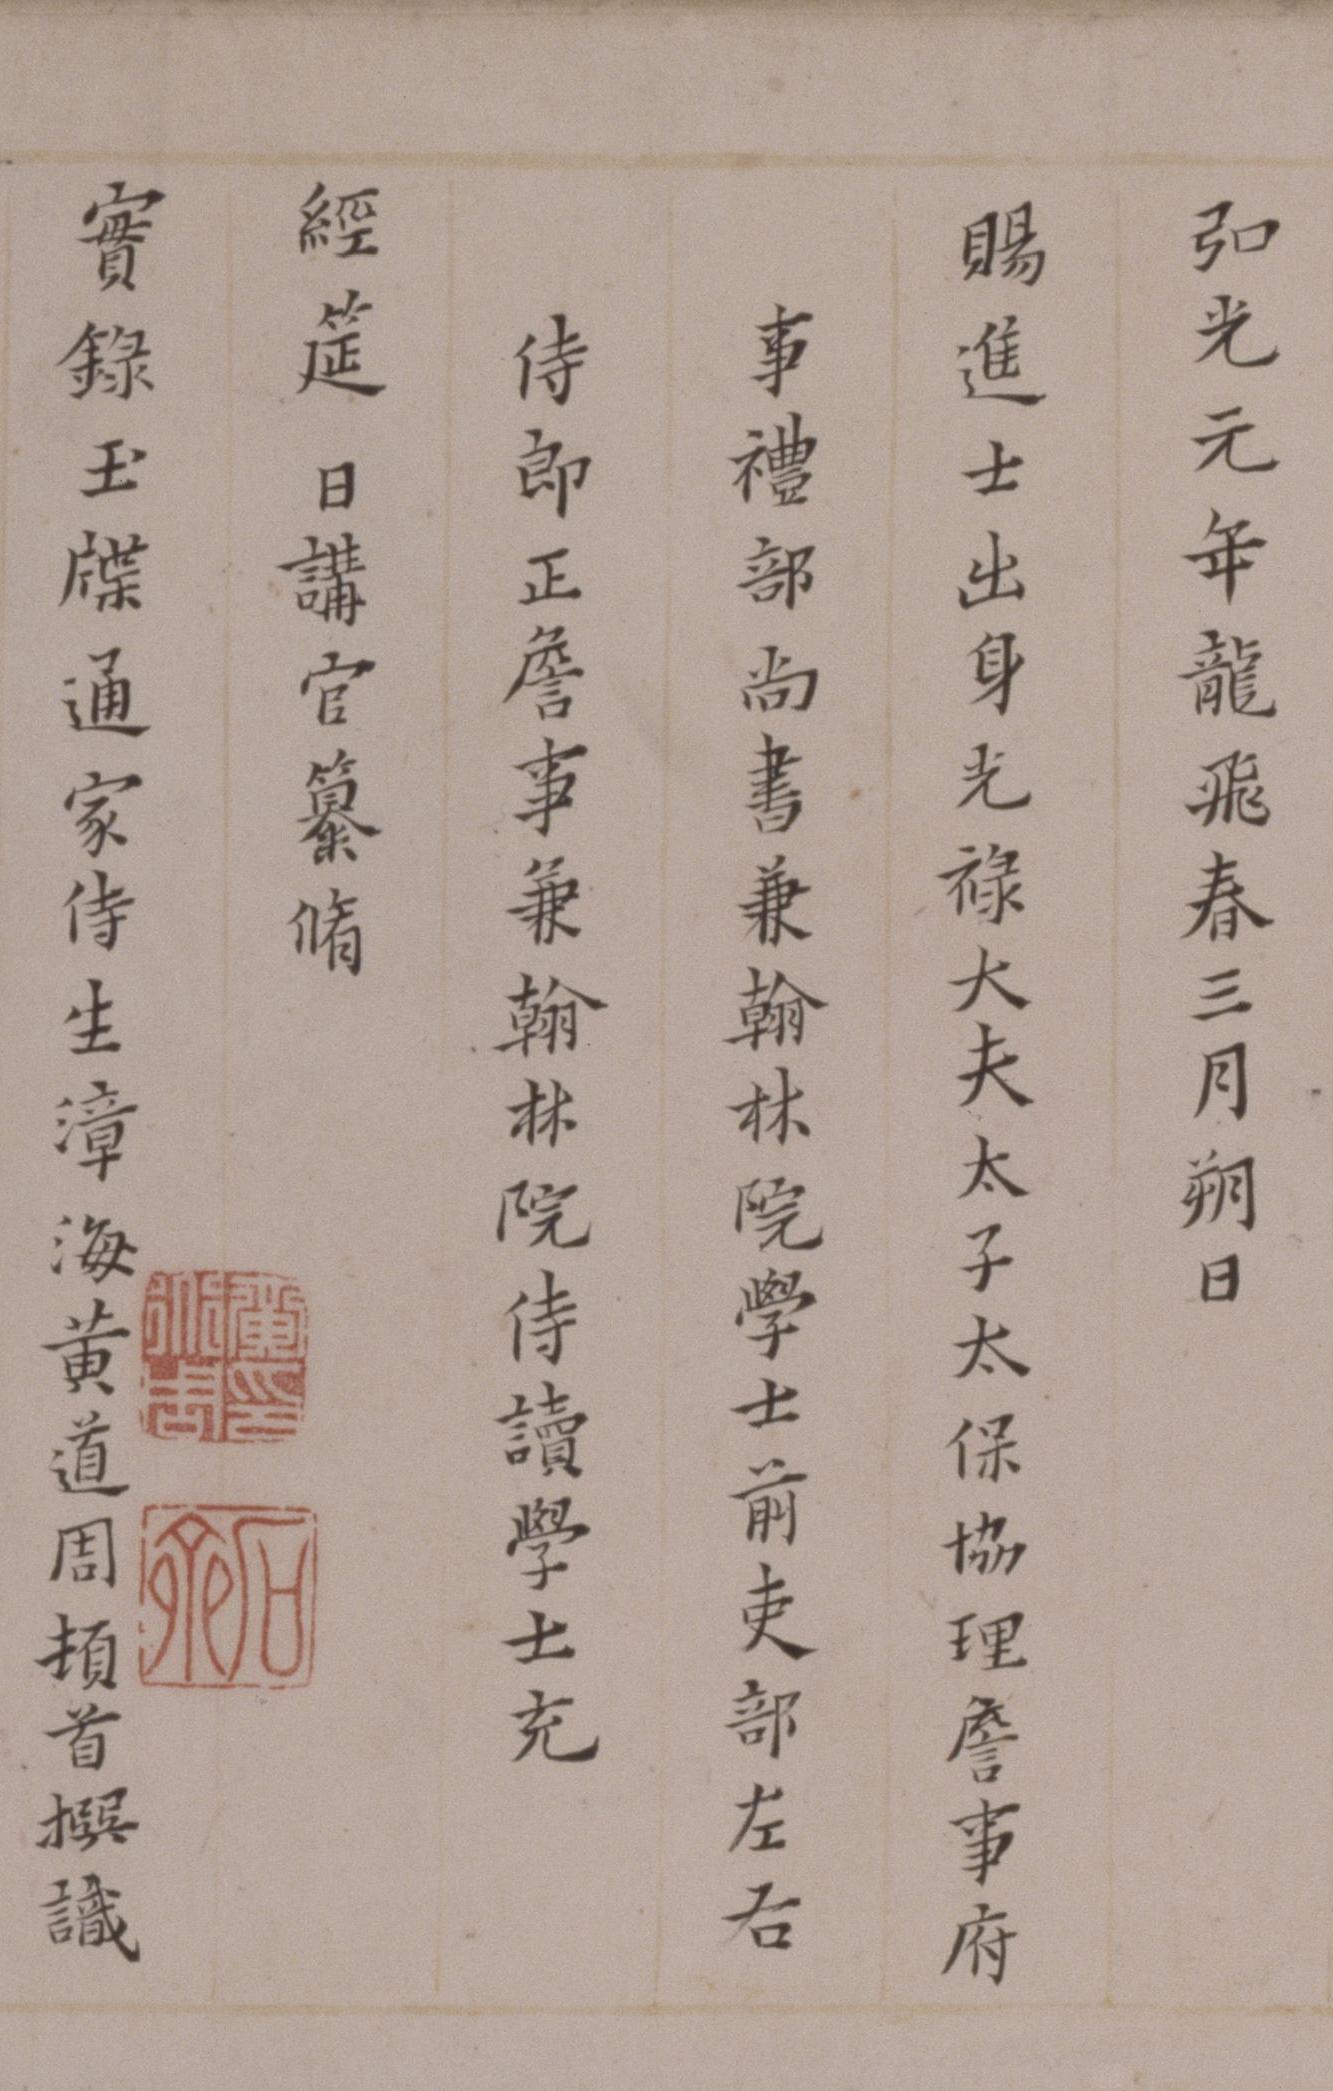 弘光元年龍飛春三月朔日
賜進士出身光祿大夫太子太保協理詹事府
事禮部尚書兼翰林院學士前吏部左右
侍郎正詹事兼翰林院侍讀學士充
經筵日講官纂脩
實錄玉牒通家侍生漳海黃道周頓首撰識
石齋